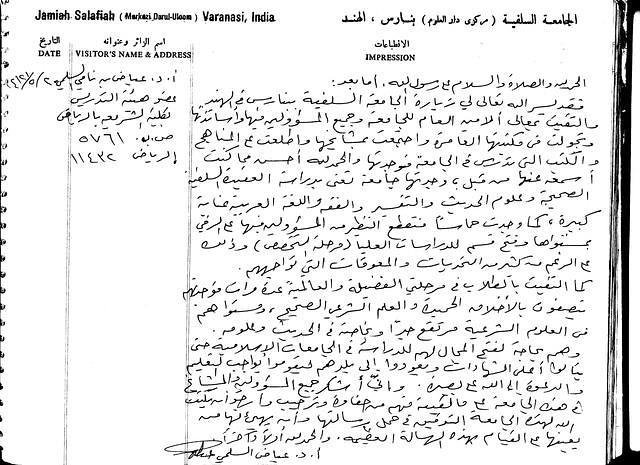 Jamiah Salafiah (Markazi Darul-Uloom) Varanasi, India
الجامعة السلفية (مركزى دار العلوم) بنارس ، الهند
التاريخ
DATE
اسم الزائر وعنوانه
VISITOR'S NAME & ADDRESS
الانطباعات
IMPRESSION
أ.د. عياض بن نامي السلمي
عضو هيئة التدريس
بكلية الشريعة بالرياض
ص.ب. ٥٧٦١
الرياض ١١٤٣٢
الحمد لله والصلاة والسلام على رسول الله. أما بعد:
فقد يسر الله تعالى لي زيارة الجامعة السلفية ببنارس في الهند
والتقيت بمعالي الأمين العام للجامعة وجميع المسؤولين فيها وأساتذتها
وتجولت في مكتبتها العامرة واجتمعت بمشايخها واطلعت على المناهج
والكتب التي تدرس في الجامعة فوجدتها والحمد لله أحسن مما كنت
أسمعه عنها من قبل، وجدتها جامعة تعنى بدراسة العقيدة السلفية
الصحيحة وعلوم الحديث والتفسير والفقه واللغة العربية عناية
كبيرة، كما وجدت حماسا منقطع النظير من المسؤولين فيها على الرقي
بمستواها وفتح قسم للدراسات العليا (مرحلة التخصص) وذلك
على الرغم من كثير من التحديات والمعوقات التي تواجههم.
كما التقيت بالطلاب في مرحلتي الفضيلة والعالمية عدة مرات فوجدتهم
يتصفون بالأخلاق الحميدة والعلم الشرعي الصحيح، ومستواهم
في العلوم الشرعية مرتفع جدا وبخاصة في الحديث وعلومه.
وهم بحاجة لفتح المجال لهم للدراسة في الجامعات الإسلامية حتى
ينالوا أعلى الشهادات ويعودوا إلى بلدهم ليقوموا بواجب التعليم
والدعوة إلى الله على بصيرة. وإني أشكر جميع المسؤولين والمشايخ
في هذه الجامعة على ما لقيته منهم من حفاوة وترحيب وأرجو أن يكتب
الله لهذه الجامعة التوفيق في حمل رسالتها وأن يهيئ لها من
يعينها على القيام بهذه الرسالة العظيمة. والحمد لله أولا وآخرا.
أ.د. عياض السلمي